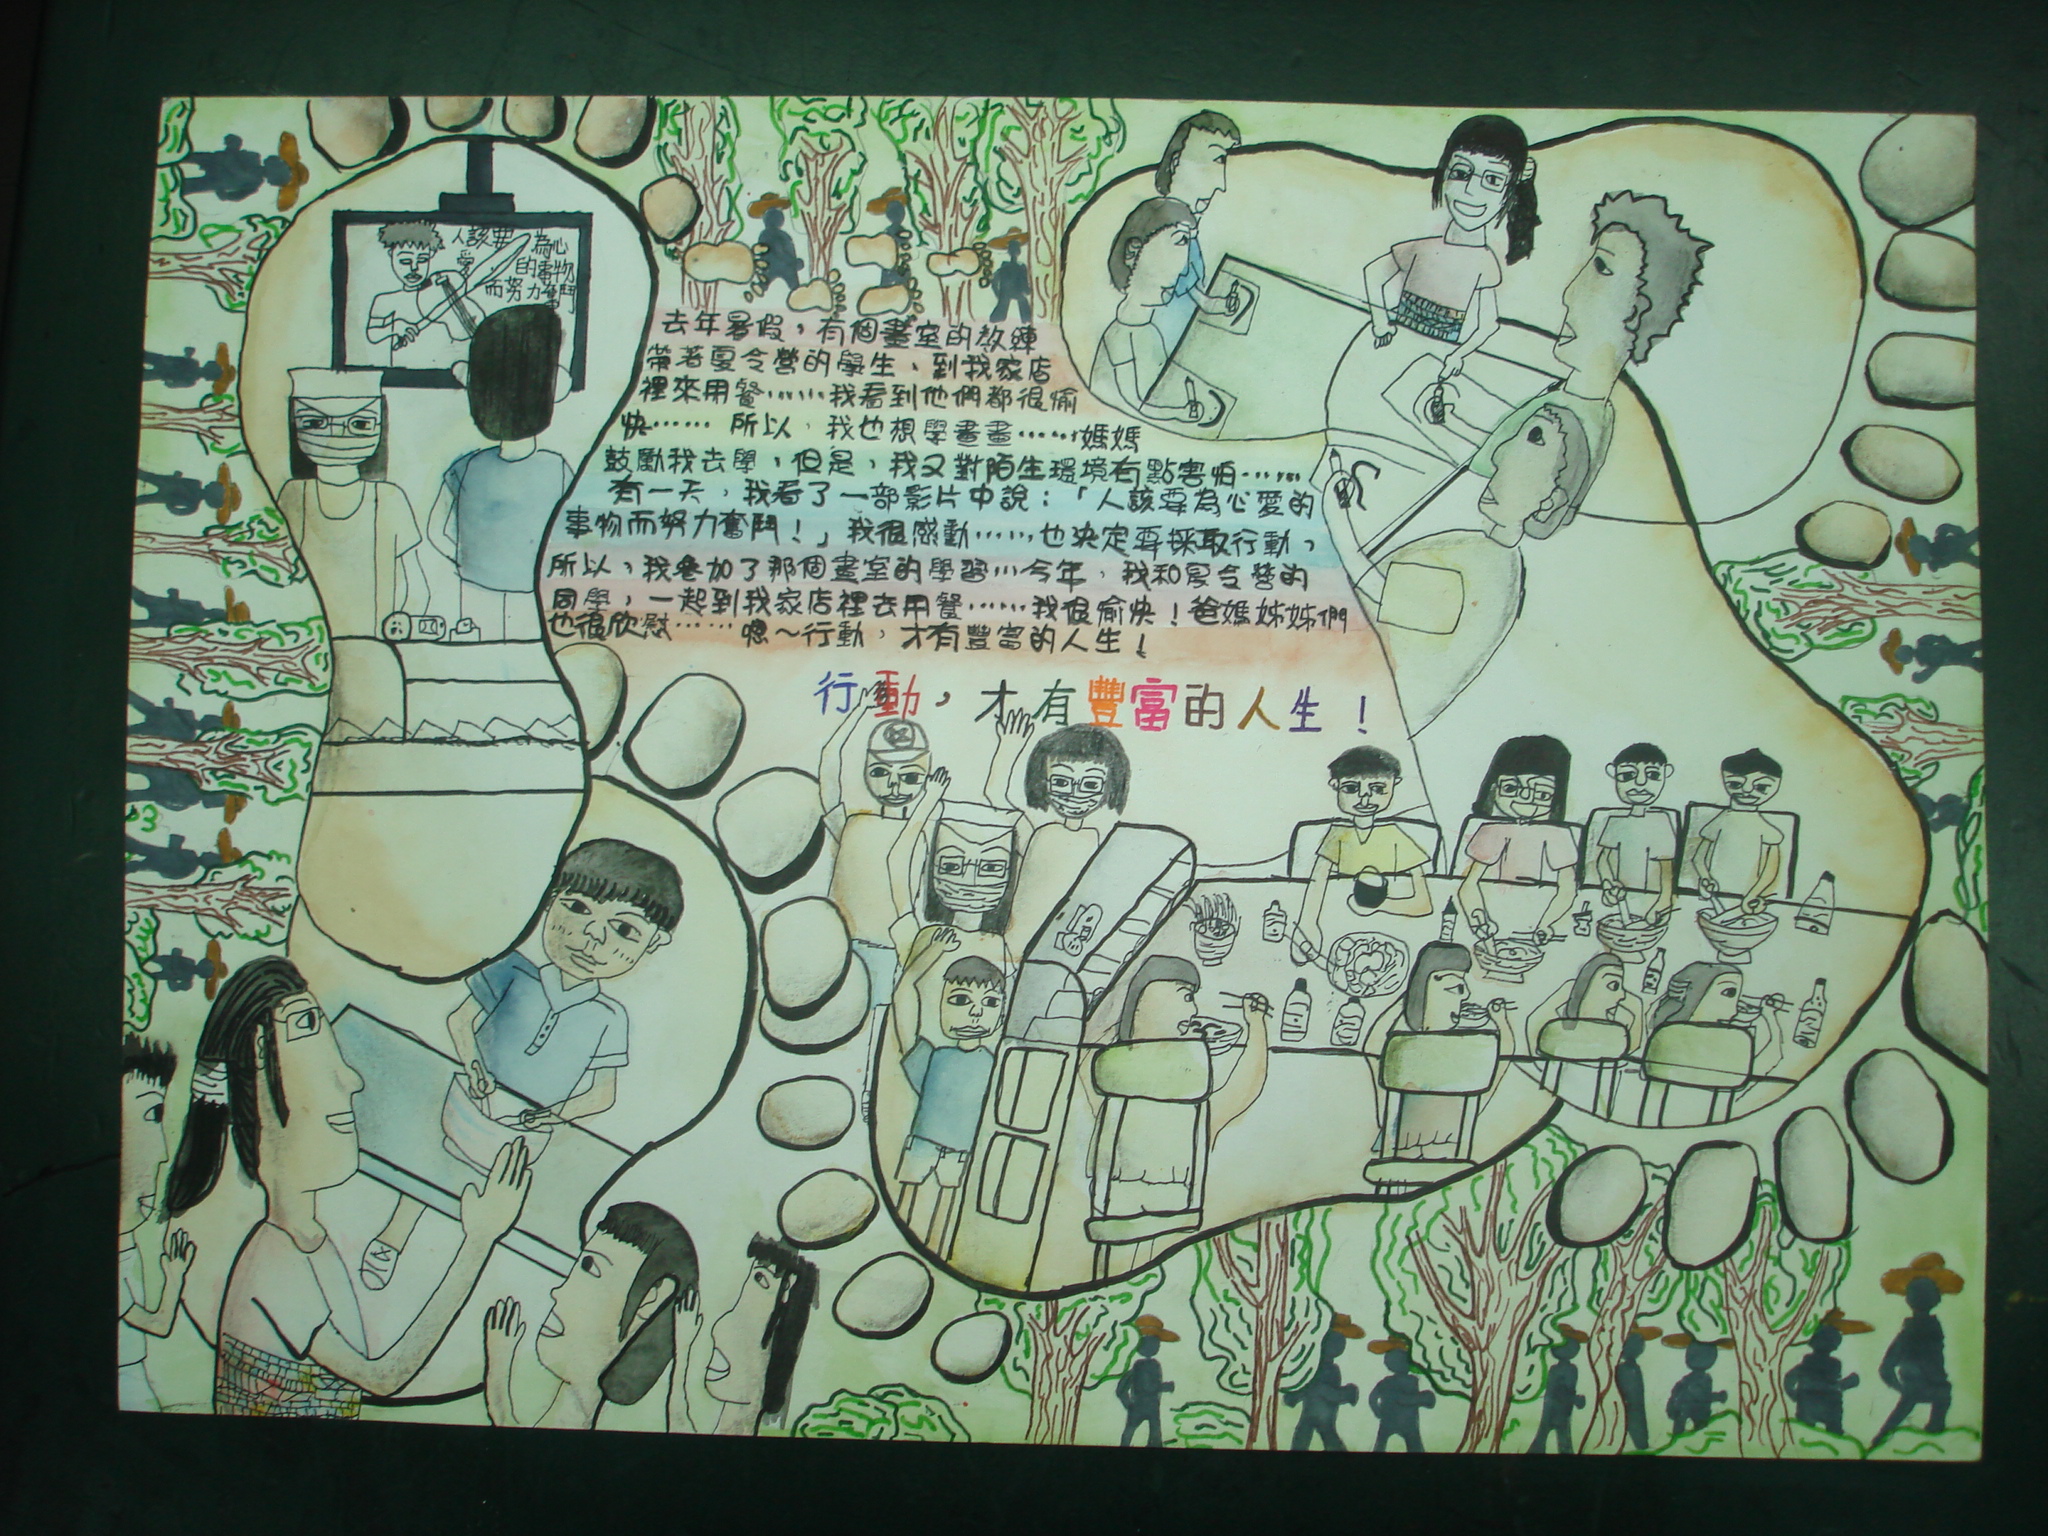 人該要
為心
愛
的事物
而努力奮鬥
去年暑假，有個畫室的教練
帶著夏令營的學生、到我家店
裡來用餐……我看到他們都很愉
快…… 所以，我也想學畫畫……媽媽
鼓勵我去學，但是，我又對陌生環境有點害怕……
有一天，我看了一部影片中說：「人該要為心愛的
事物而努力奮鬥！」我很感動……也決定要採取行動，
所以，我參加了那個畫室的學習…今年，我和夏令營的
同學，一起到我家店裡去用餐……我很愉快！爸媽姊姊們
也很欣慰…… 嗯～行動，才有豐富的人生！
行動，才有豐富的人生！